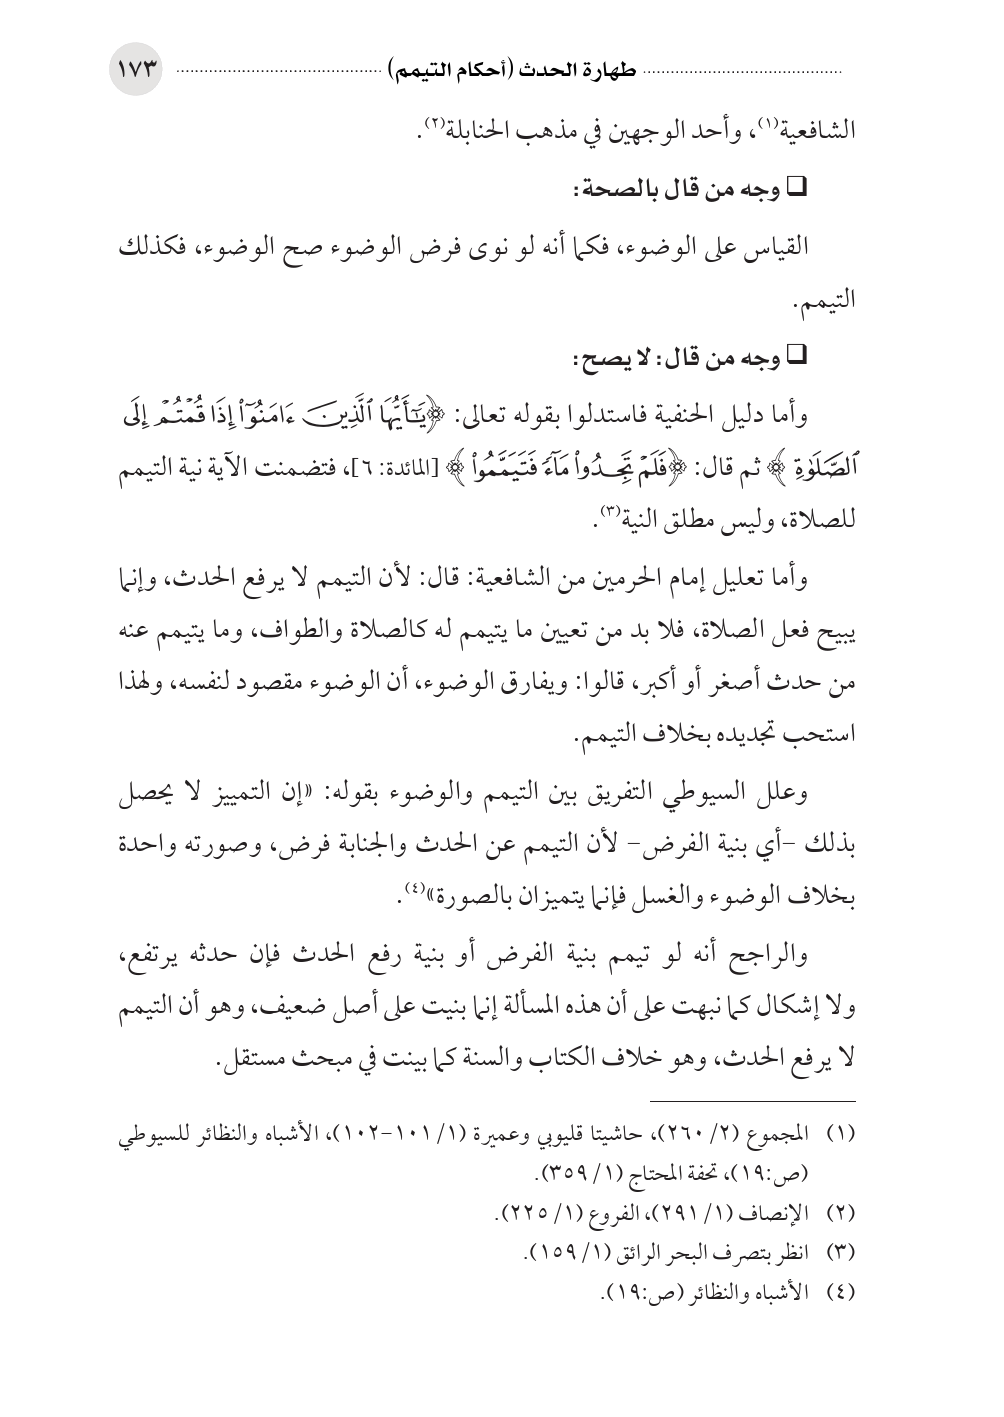 طهارة الحدث (أحكام التيمم) ١٧٣
الشافعية(١)، وأحد الوجهين في مذهب الحنابلة(٢).
❑ وجه من قال بالصحة:
القياس على الوضوء، فكما أنه لو نوى فرض الوضوء صح الوضوء، فكذلك
التيمم.
❑ وجه من قال: لا يصح:
وأما دليل الحنفية فاستدلوا بقوله تعالى: ﴿يَٰٓأَيُّهَا ٱلَّذِينَ ءَامَنُوٓا۟ إِذَا قُمْتُمْ إِلَى
ٱلصَّلَوٰةِ﴾ ثم قال: ﴿فَلَمْ تَجِدُوا۟ مَآءً فَتَيَمَّمُوا۟﴾ [المائدة: ٦]، فتضمنت الآية نية التيمم
للصلاة، وليس مطلق النية(٣).
وأما تعليل إمام الحرمين من الشافعية: قال: لأن التيمم لا يرفع الحدث، وإنما
يبيح فعل الصلاة، فلا بد من تعيين ما يتيمم له كالصلاة والطواف، وما يتيمم عنه
من حدث أصغر أو أكبر، قالوا: ويفارق الوضوء، أن الوضوء مقصود لنفسه، ولهذا
استحب تجديده بخلاف التيمم.
وعلل السيوطي التفريق بين التيمم والوضوء بقوله: «إن التمييز لا يحصل
بذلك -أي بنية الفرض- لأن التيمم عن الحدث والجنابة فرض، وصورته واحدة
بخلاف الوضوء والغسل فإنما يتميزان بالصورة»(٤).
والراجح أنه لو تيمم بنية الفرض أو بنية رفع الحدث فإن حدثه يرتفع،
ولا إشكال كما نبهت على أن هذه المسألة إنما بنيت على أصل ضعيف، وهو أن التيمم
لا يرفع الحدث، وهو خلاف الكتاب والسنة كما بينت في مبحث مستقل.
(١) المجموع (٢/ ٢٦٠)، حاشيتا قليوبي وعميرة (١/ ١٠١-١٠٢)، الأشباه والنظائر للسيوطي
(ص:١٩)، تحفة المحتاج (١/ ٣٥٩).
(٢) الإنصاف (١/ ٢٩١)، الفروع (١/ ٢٢٥).
(٣) انظر بتصرف البحر الرائق (١/ ١٥٩).
(٤) الأشباه والنظائر (ص:١٩).